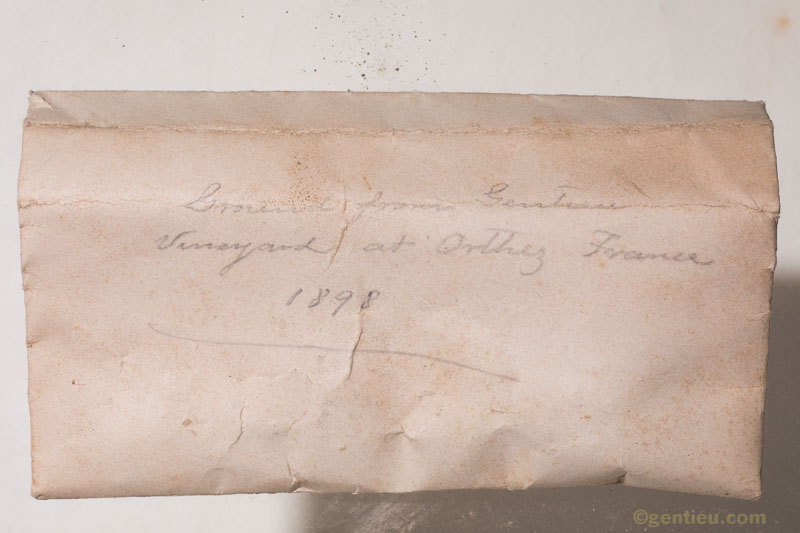 Ground from Gentieu
Vineyard at Orthez France
1898
©gentieu.com